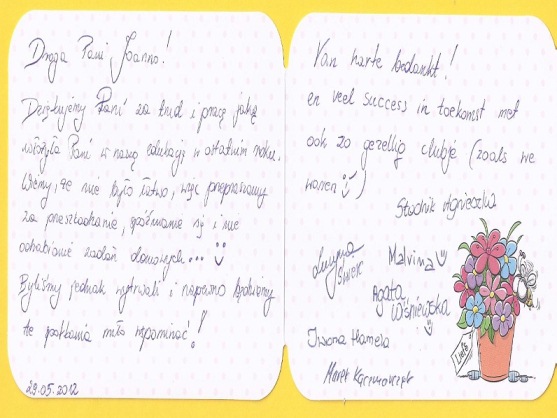 Droga Pani Joanno!
Dziękujemy Pani za trud i pracę jaką
włożyła Pani w naszą edukację w ostatnim roku.
Wiemy, że nie było łatwo, więc przepraszamy
za przeszkadzanie, spóźnianie się i nie
odrabianie zadań domowych...
Byliśmy jednak wytrwali i napewno będziemy
te spotkania miło wspominać!
29.05.2012
Van harte bedankt!
en veel success in toekomst met
ook zo gezellig clubje (zoals we
waren )
Studnik Agnieszka
Malvina
Agata
Wiśniewska
Iwona Hamela
Marek